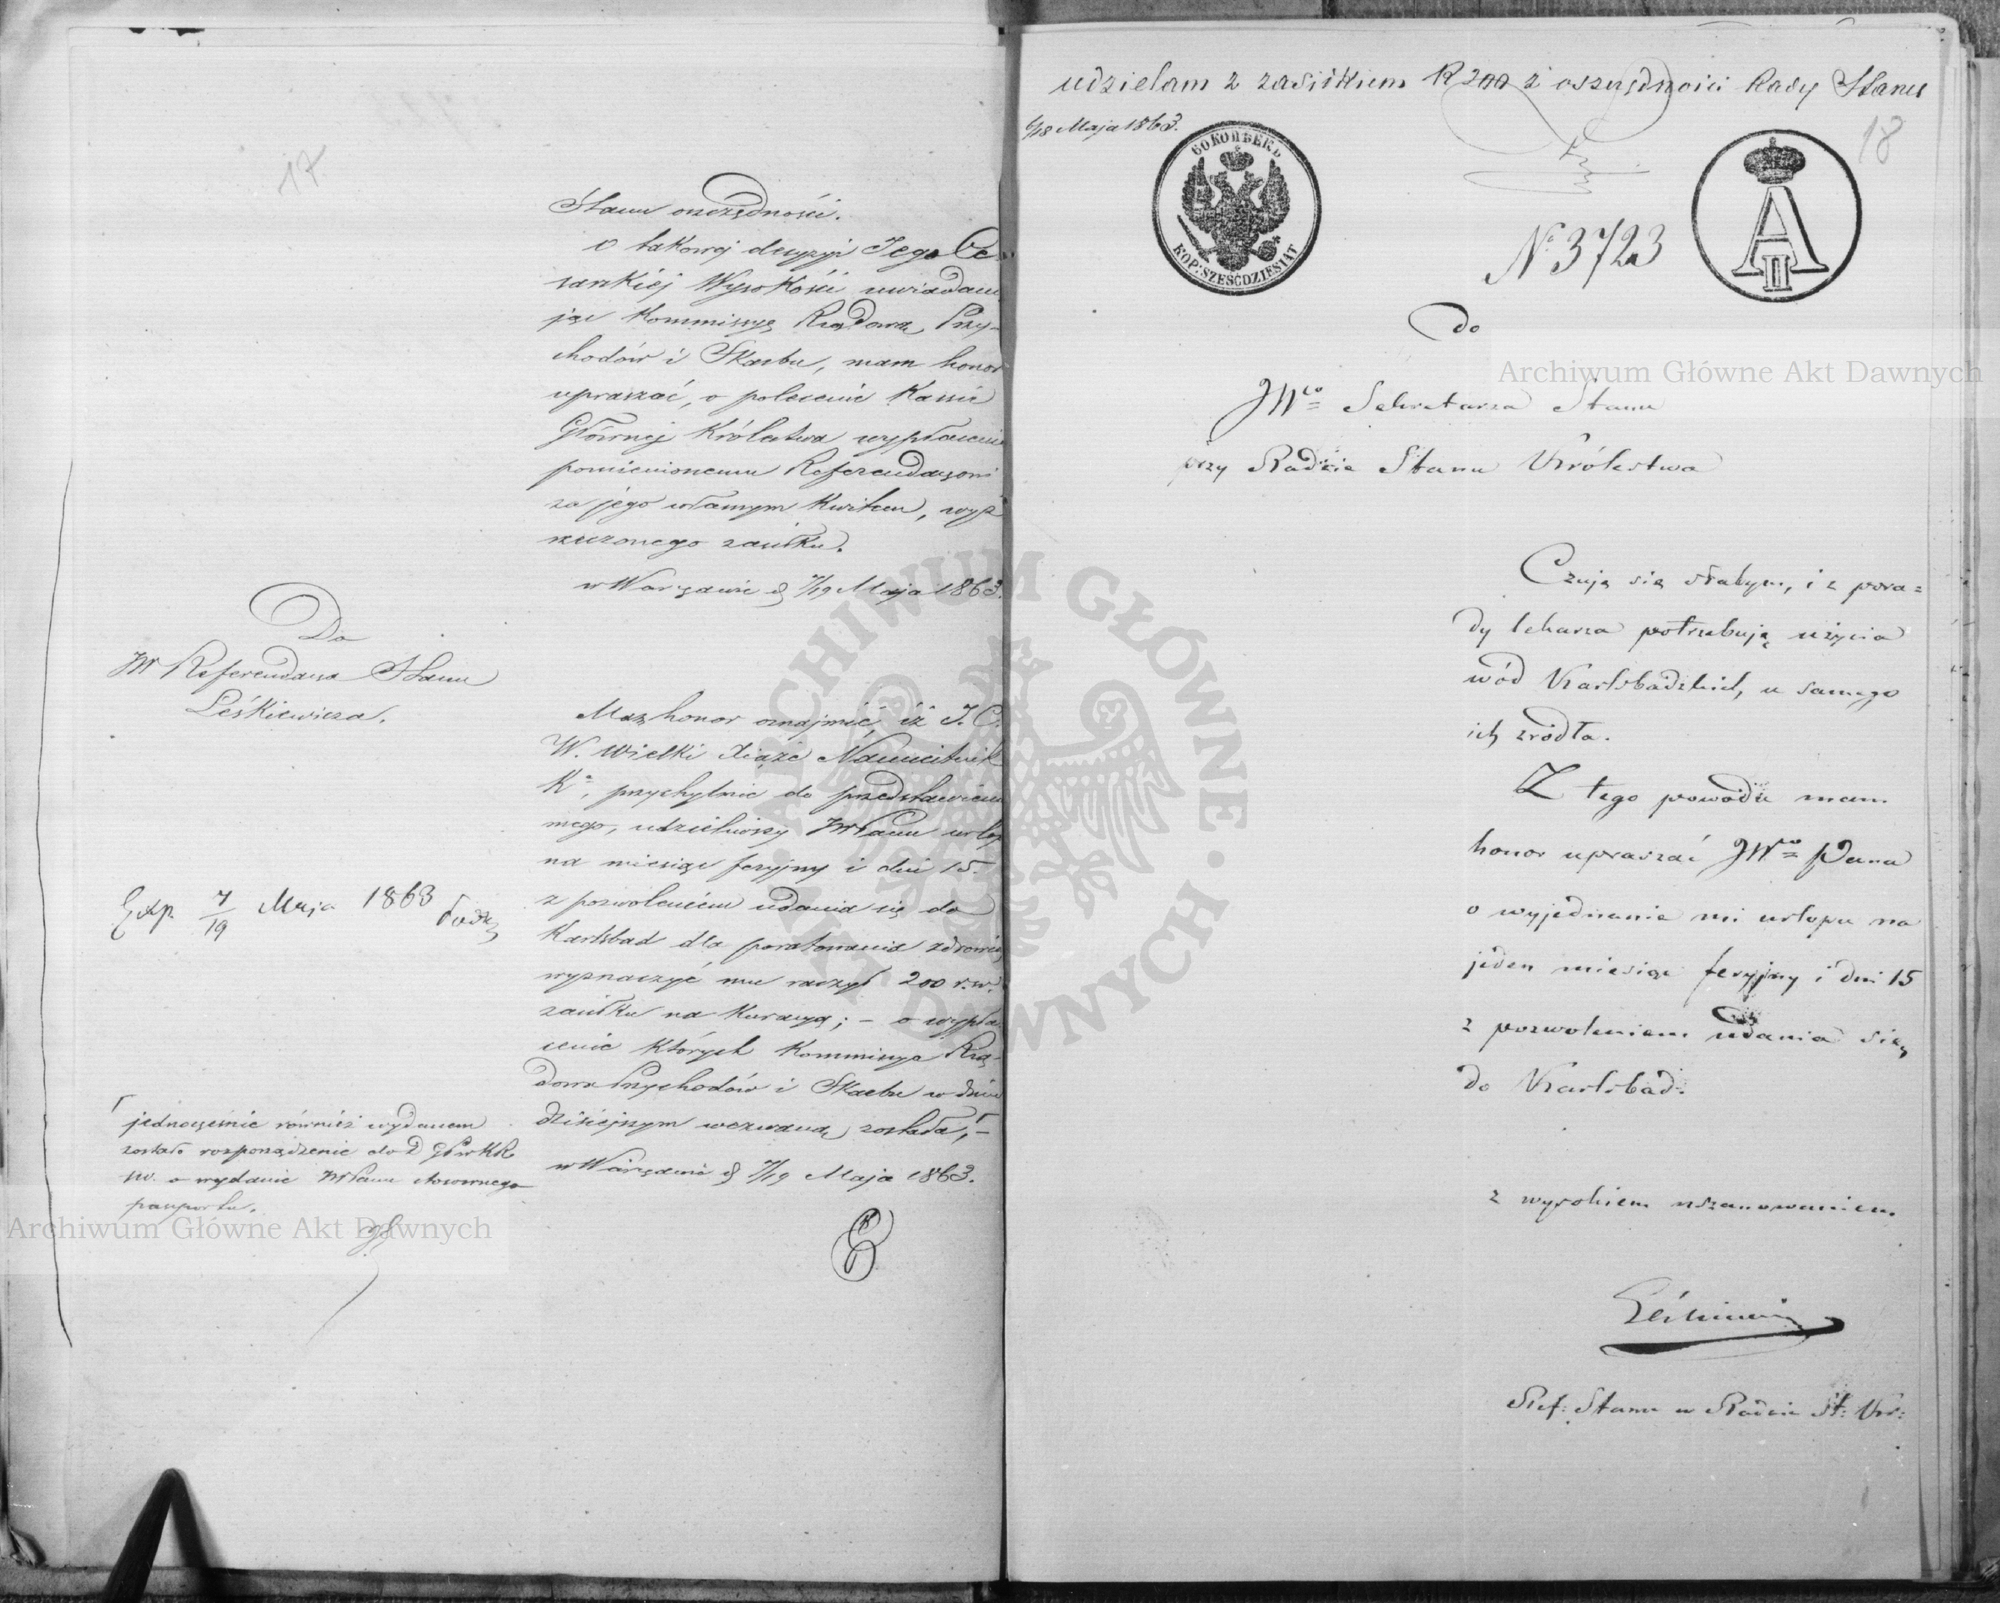 17
Stanu oszczędności.
O takowej decyzyi Jego Ce-
sarskiéj Wysokości uwiadami
jąc Kommissyę Rządową Przy-
chodów i Skarbu, mam honor
upraszać, o polecenie Kassie
Głównej Królestwa wypłacenie
pomienionemu Referendarzowi
za jego własnym kwitem, wyż
rzeczonego zasiłku.
w Warszawie d 7/19 Maja 1863.
Do
JW Referendarza Stanu
Leśkiewicza.
Mam honor oznajmić, iż J. C.
W. Wielki Xiąże Namiestnik
Kr., przychylnie do przedstawienia
mego, udzieliwszy JWPanu urlop
na miesiąc feryjny i dni 15.
z pozwoleniem udania się do
Karlsbad dla poratowania zdrowia,
wyznaczyć mu raczył 200 r. sr.
zasiłku na kuracyą; – o wypła
cenie których Kommissya Rzą-
dowa Przychodów i Skarbu w dniu
dzisiejszym wezwaną została,┌–
w Warszawie d 7/19 Maja 1863.
Exp. 7/19 Maja 1863
┌ jednocześnie również wydanem
zostało rozporządzenie do D Głów KR
o wydanie JWPanu stosownego
paszportu.
udzielam z zasiłkiem R 200 z oszczędności Rady Stanu
6/18 Maja 1863.
18
60 КОПѢЕКЪ
KOP: SZEŚĆDZIESIĄT
A II
N: 3723
Do
JWgo Sekretarza Stanu
przy Radzie Stanu Królestwa
Czuję się słabym, i z pora=
dy lekarza potrzebuję użycia
wód Karlsbadzkich, u samego
ich źródła.
Z tego powodu mam
honor upraszać JWgo Pana
o wyjednanie mi urlopu na
jeden miesiąc feryjny i dni 15
z pozwoleniem udania się
do Karlsbad.
z wysokiem uszanowaniem
Leśkiewicz
Ref: Stanu w Radzie St: Kr:
Archiwum Główne Akt Dawnych
Archiwum Główne Akt Dawnych
ARCHIWUM GŁÓWNE · AKT DAWNYCH ·